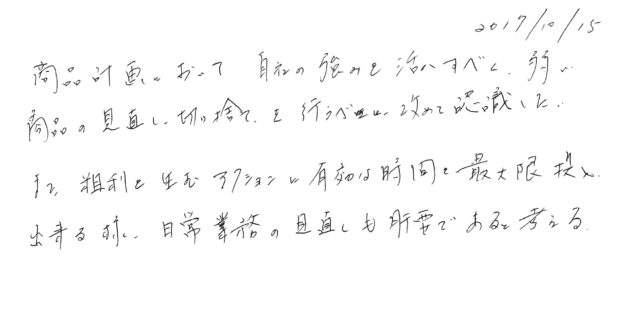 2017/10/15
商品計画において 自社の強みを活かすべく、弱い
商品の見直し、切り捨てを行うべきと改めて認識した。
また粗利を生むアクションに有効な時間を最大限投入
出来る様に、日常業務の見直しも肝要であると考える。